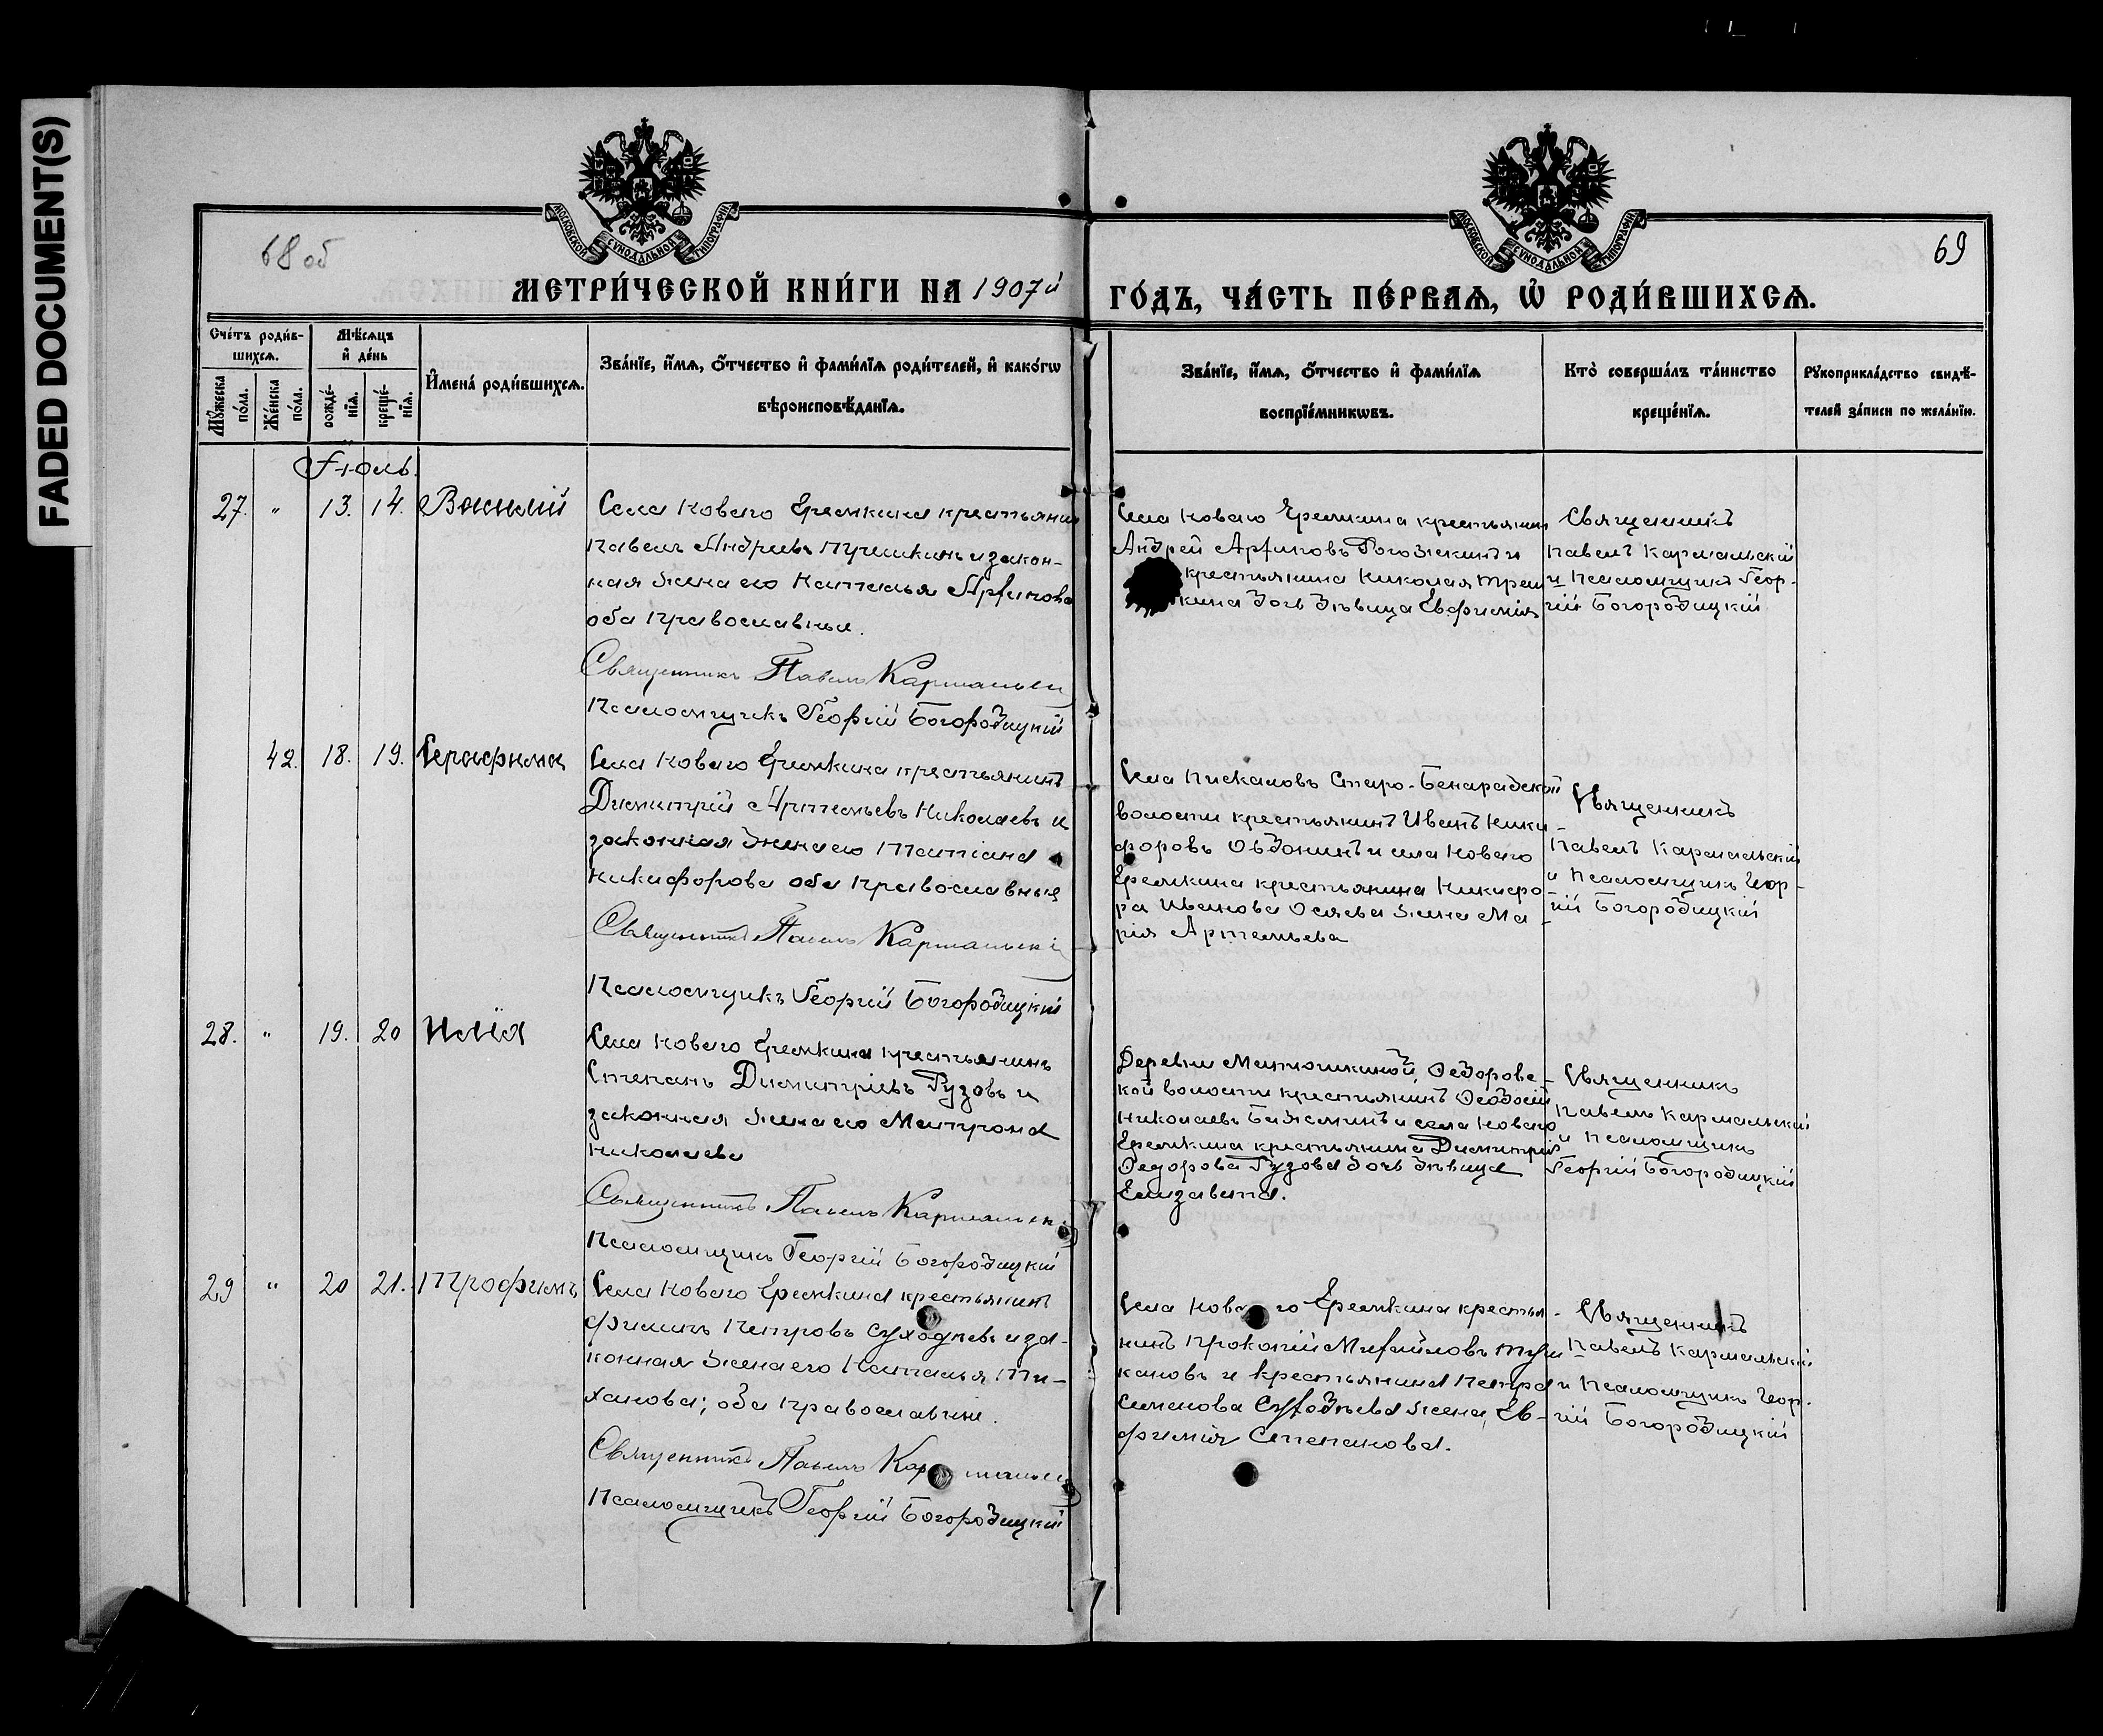 FADED DOCUMENT(S)
68 об
69
МОСКОВСКОЙ СѴНОДАЛЬНОЙ ТИПОГРАФІИ
МОСКОВСКОЙ СѴНОДАЛЬНОЙ ТИПОГРАФІИ
МЕТРИ́ЧЕСКОЙ КНИ́ГИ НА 1907й
ГО́ДЪ, ЧА́СТЬ ПЕ́РВАѦ, Ѡ҆ РОДИ́ВШИХСѦ.
Сче́тъ роди́в-
шихсѧ.
Мꙋ́жеска по́ла.
Же́нска по́ла.
Мѣ́сѧцъ
и҆ де́нь
рожде́-нїѧ.
креще́-нїѧ.
И҆мена̀ роди́вшихсѧ.
Зва́нїе, и҆́мѧ, ѻ҆́тчество и҆ фами́лїѧ роди́телей, и҆ како́гѡ
вѣроисповѣ́данїѧ.
Зва́нїе, и҆́мѧ, ѻ҆́тчество и҆ фами́лїѧ
воспрїе́мникѡвъ.
Кто̀ соверша́лъ та́инство
креще́нїѧ.
Рꙋкоприкла́дство свидѣ́-
телей за́писи по жела́нїю.
Іюль.
27. " 13. 14. Василій
Села Новаго Еремкина крестьянин
Павелъ Андреевъ и закон-
ная жена его Наталья Архипова
оба православные.
Священникъ Павелъ Кармальскій
Псаломщикъ Георгій Богородицкій
Села Новаго Еремкина крестьянин
Андрей Архиповъ Рогожкинъ и
крестьянина Николая
кина дочь дѣвица Евфимія
Священникъ
Павелъ Кармальскій
и Псаломщикъ Геор-
гій Богородицкій
42. 18. 19. Серафима
Села Новаго Еремкина крестьянинъ
Димитрій Артемьевъ Николаевъ и
законная жена его Татіана
Никифорова оба православные
Священникъ Павелъ Кармальскій
Псаломщикъ Георгій Богородицкій
Села Пискаловъ Старо-Бенарадской
волости крестьянинъ Иванъ Ники-
форовъ Овдонинъ и села Новаго
Еремкина крестьянина Никифо-
ра Иванова жена Ма-
рія Артемьева
Священникъ
Павелъ Кармальскій
и Псаломщикъ Геор-
гій Богородицкій
28. " 19. 20 Илія
Села Новаго Еремкина крестьянинъ
Степанъ Димитріевъ Гузовъ и
законная жена его Матрона
Николаева
Священникъ Павелъ Кармальск.
Псаломщикъ Георгій Богородицкій
Деревни Матюшкиной, Ѳедоровс-
кой волости крестьянинъ Ѳеодосій
Николаевъ и села Новаго
Еремкина крестьянина Димитрія
Ѳедорова Гузова дочь дѣвица
Елизавета.
Священникъ
Павелъ Кармальскій
и Псаломщикъ
Георгій Богородицкій
29 " 20 21. Трофимъ
Села Новаго Еремкина крестьянинъ
Филипъ Петровъ Суходѣевъ и за-
конная жена его Наталья Ти-
ханова; оба православные.
Священникъ Павелъ Кармальск
Псаломщикъ Георгій Богородицкій
Села Новаго Еремкина крестья-
нинъ Прокопій Михайловъ
кановъ и крестьянина Петра
Семенова Суходѣева жена Ев-
фимія Степанова.
Священникъ
Павелъ Кармальскій
и Псаломщикъ Геор-
гій Богородицкій